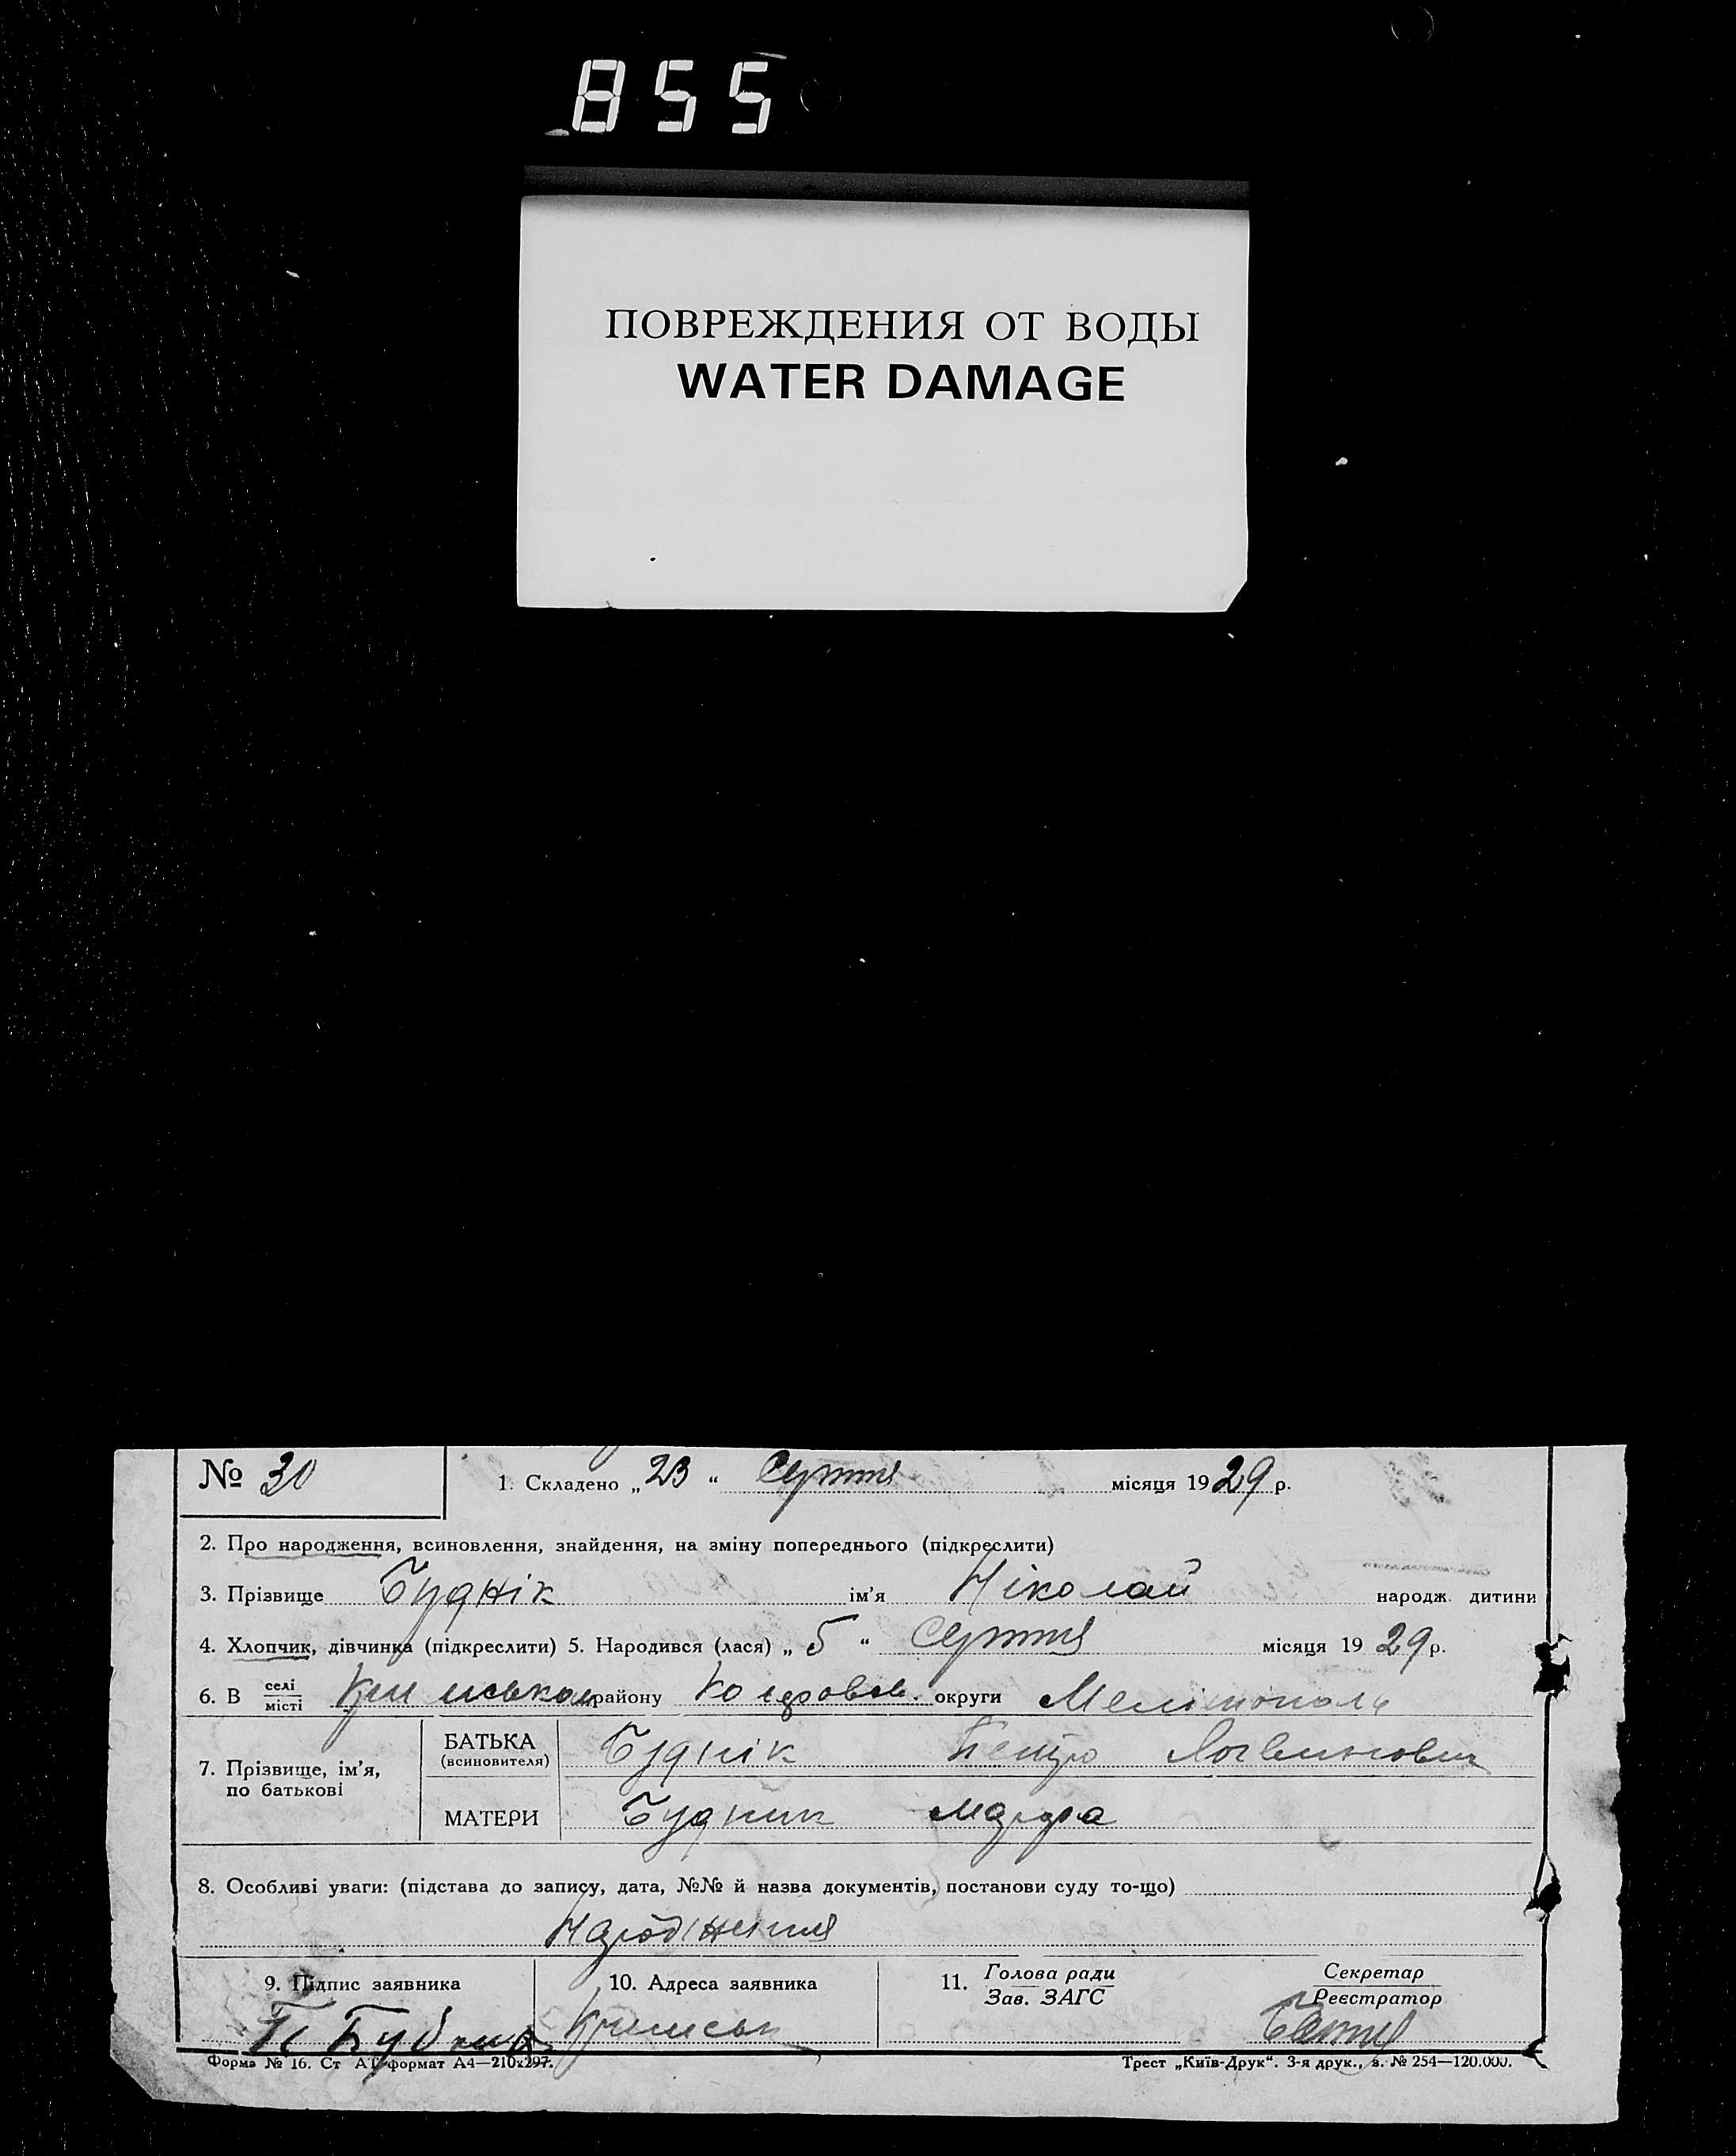 855
ПОВРЕЖДЕНИЯ ОТ ВОДЫ
WATER DAMAGE
№ 30
1. Складено „ 23 “ Серпня місяця 1929 р.
2. Про народження, всиновлення, знайдення, на зміну попереднього (підкреслити)
3. Прізвище Буднік ім’я Ніколай народж. дитини
4. Хлопчик, дівчинка (підкреслити) 5. Народився (лася) „ 5 “ Серпня місяця 1929 р.
6. В селі/місті району округи Мелітополь
7. Прізвище, ім’я, по батькові
БАТЬКА (всиновителя) Буднік Петро Логвинович
МАТЕРИ Будник
8. Особливі уваги: (підстава до запису, дата, №№ й назва документів, постанови суду то-що)
9. Підпис заявника 10. Адреса заявника 11. Голова ради / Зав. ЗАГС Секретар / Реєстратор
П Будник
Форма № 16. Ст АТ формат А4—210х297. Трест „Київ-Друк“. 3-я друк., з. № 254—120.000.